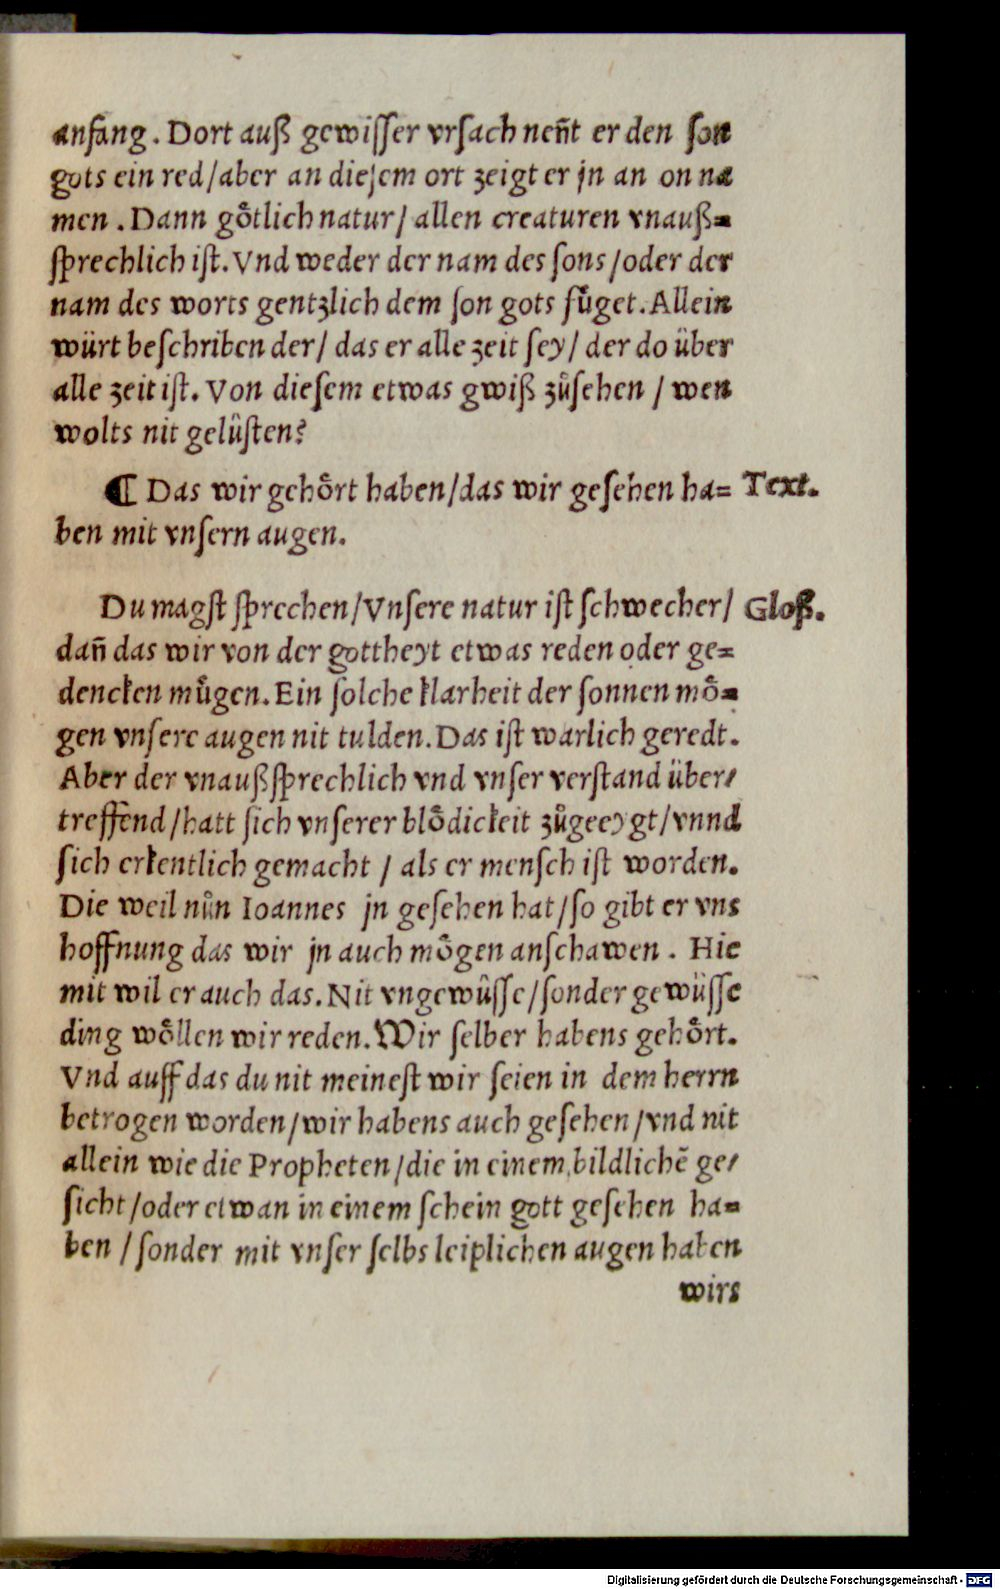 anfang. Dort auß gewiſſer vrſach neñt er den ſon
gots ein red/aber an dieſem ort zeigt er jn an on na
men. Dann goͤtlich natur/ allen creaturen vnauß=
ſprechlich iſt. Vnd weder der nam des ſons/oder der
nam des worts gentzlich dem ſon gots fuͤget. Allein
würt beſchriben der/ das er alle zeit ſey/ der do über
alle zeit iſt. Von dieſem etwas gwiß zuͦſehen / wen
wolts nit geluͤſten?
¶ Das wir gehoͤrt haben/das wir geſehen ha= Text.
ben mit vnſern augen.
Du magſt ſprechen/Vnſere natur iſt ſchwecher/ Gloß.
dañ das wir von der gottheyt etwas reden oder ge=
dencken muͤgen. Ein ſolche klarheit der ſonnen moͤ=
gen vnſere augen nit tulden. Das iſt warlich geredt.
Aber der vnaußſprechlich vnd vnſer verſtand über/
treffend/hatt ſich vnſerer bloͤdickeit zuͦgeeygt/vnnd
ſich erkentlich gemacht / als er menſch iſt worden.
Die weil nuͦn Ioannes jn geſehen hat/ſo gibt er vns
hoffnung das wir jn auch moͤgen anſchawen. Hie
mit wil er auch das. Nit vngewuͤſſe/ſonder gewüſſe
ding woͤllen wir reden. Wir ſelber habens gehoͤrt.
Vnd auff das du nit meineſt wir ſeien in dem herrn
betrogen worden/wir habens auch geſehen/vnd nit
allein wie die Propheten/die in einem bildlichē ge/
ſicht/oder etwan in einem ſchein gott geſehen ha=
ben /ſonder mit vnſer ſelbs leiplichen augen haben
wirs
Digitalisierung gefördert durch die Deutsche Forschungsgemeinschaft - DFG